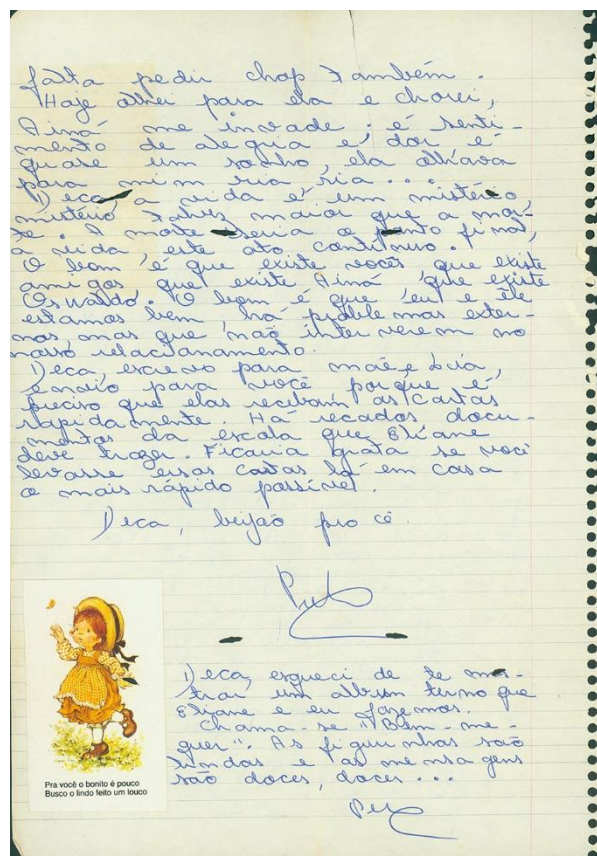 falta pedir chop também.
Hoje olhei para ela e chorei,
Ainá me invade. é senti-
mento de alegria e dor é
quase um sonho, ela olhava
para mim ria ria...
Deca, a vida é um mistério
mistério talvez maior que a mor-
te. A morte seria o ponto final,
a vida este ato contínuo.
O bom é que existe vocês, que existe
amigos que existe Ainá que existe
Oswaldo. O bom é que eu e ele
estamos bem há problemas exter-
nos, mas que não interverem no
nosso relacionamento.
Deca, escrevo para mãe e Lia,
envio para você porque é
preciso que elas recebam as cartas
rapidamente. Há recados docu-
mentos da escola que Eliane
deve trazer. Ficaria grata se você
levasse essas cartas lá em casa
o mais rápido possível.
Deca, beijão pro cê.
Deca, esqueci de te mos-
trar um album terno que
Eliane e eu fazemos.
Chama-se "Bem-me-
quer". As figurinhas são
lindas e as mensagens
são doces, doces...
Pra você o bonito é pouco
Busco o lindo feito um louco